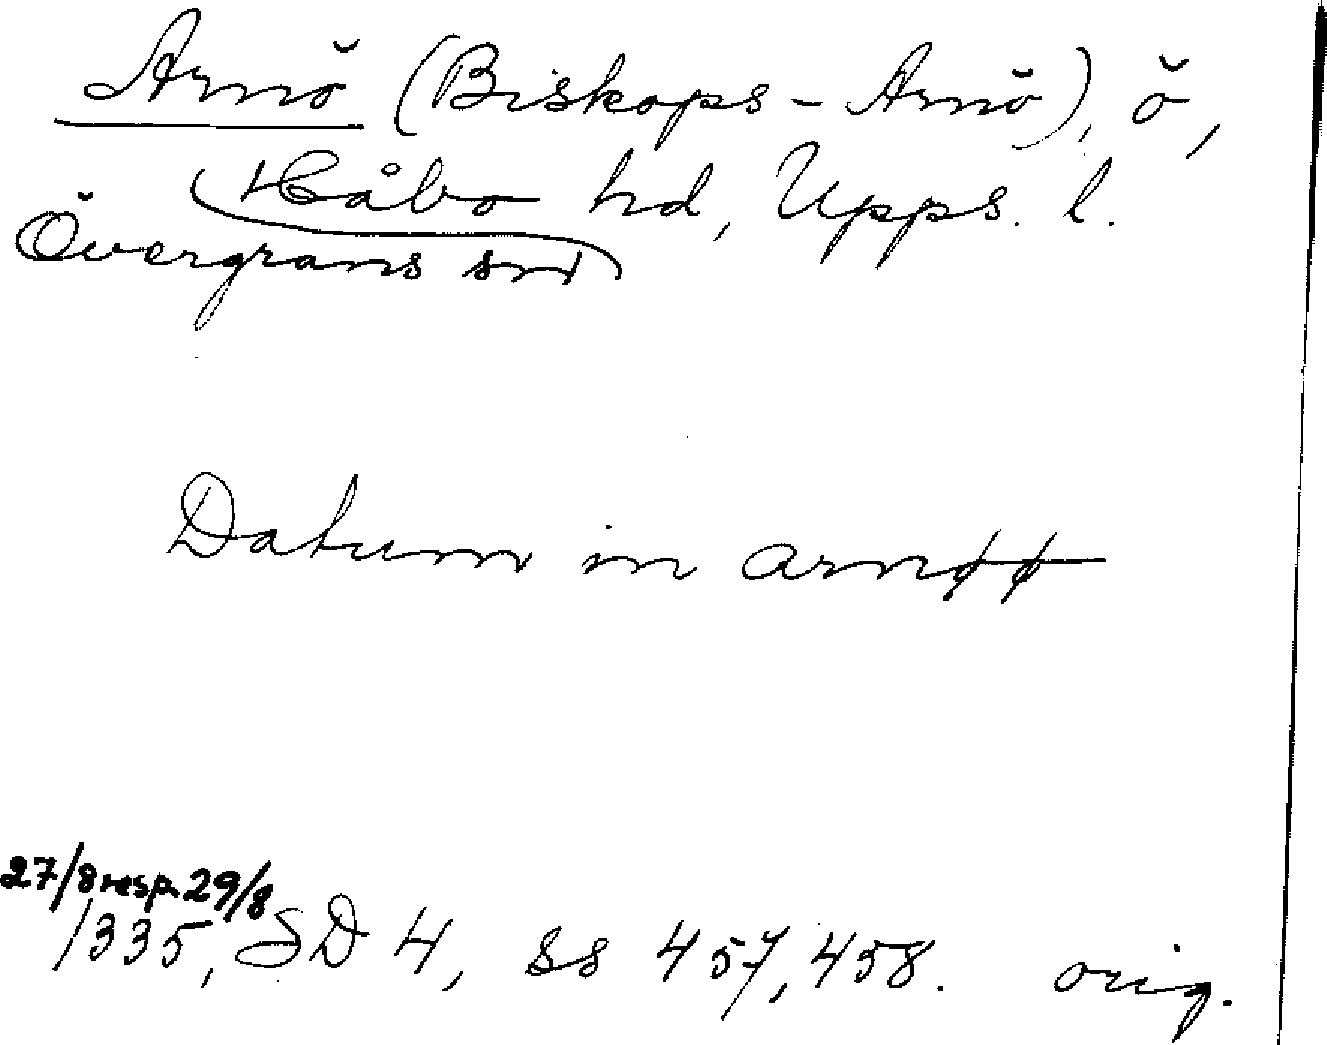 Arnö (Biskops-Arnö), ö,
Håbo hd, Upps. l.
Övergrans sn
Datum in arnøø
27/8 resp. 29/8
1335, SD 4, ss 457, 458. orig.